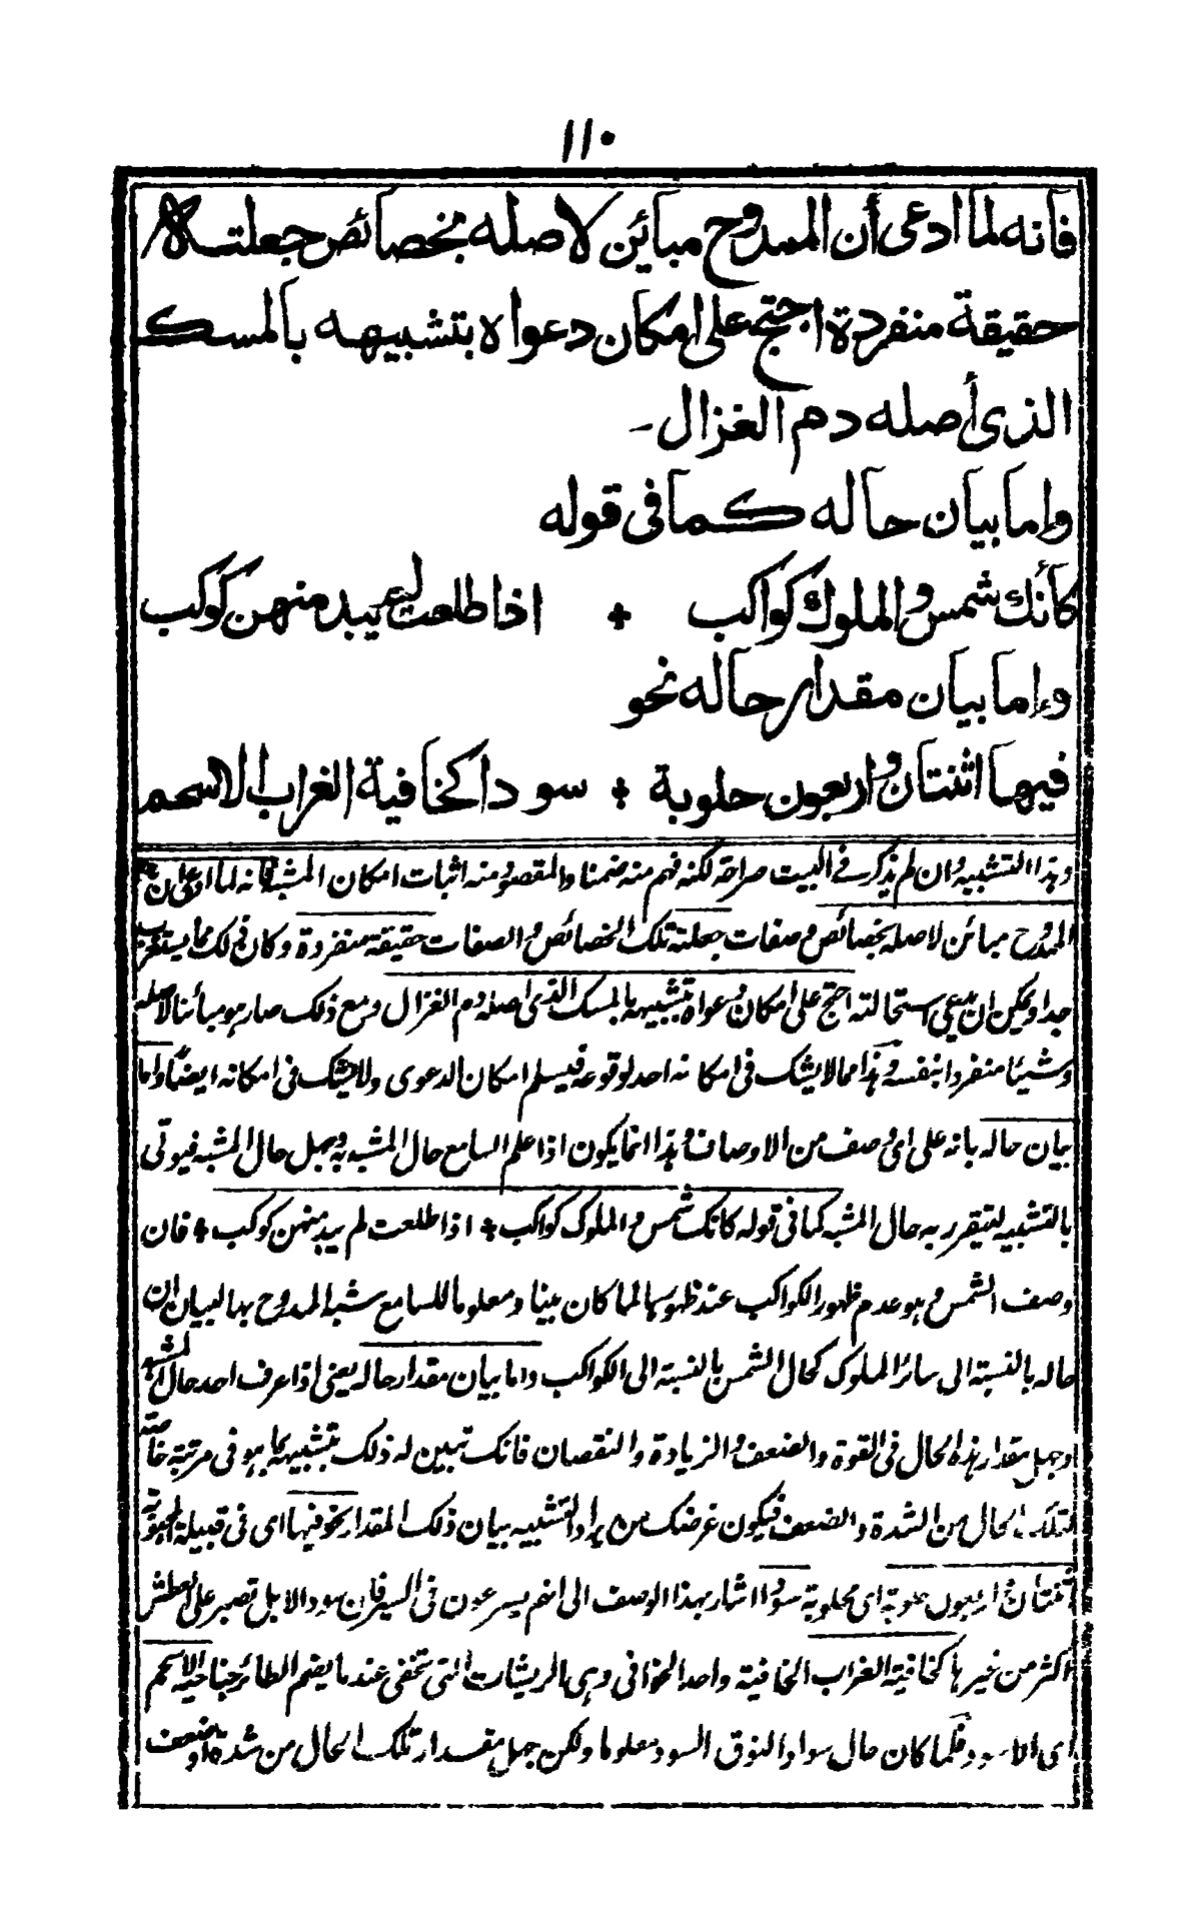 ١١٠
فانه لما ادعى أن الممدوح مباين لاصله بخصائص جعلته
حقيقة منفردة احتج على امكان دعواه بتشبيهه بالمسك
الذى أصله دم الغزال -
وإما بيان حاله كما فى قوله
كأنك شمس والملوك كواكب + اذا طلعت لم يبد منهن كوكب
وإما بيان مقدار حاله نحو
فيها اثنتان واربعون حلوبة + سودا كخافية الغراب الاسحم
وهذا التشبيه وان لم يذكر فى البيت صراحة لكنه فهم منه ضمنا والمقصود منه اثبات امكان المشبه فانه لما ادعى ان
الممدوح مبائن لاصله بخصائص وصفات جعلته تلك الخصائص والصفات حقيقة منفردة وكان ذلك مما يستغرب
جدا ويمكن ان يدعى استحالته احتج على امكان دعواه بتشبيهه بالمسك الذى اصله دم الغزال ومع ذلك صار هو مبائنا لاصله
وشيئا منفردا بنفسه وهذا مما لا يشك فى امكانه احد لوقوعه فيسلم امكان الدعوى ولا يشك فى امكانه ايضا واما
بيان حاله بانه على اى وصف من الاوصاف وهذا انما يكون اذا علم السامع حال المشبه به وجهل حال المشبه فيوتى
بالتشبيه ليتقرر به حال المشبه كما فى قوله كانك شمس والملوك كواكب + اذا طلعت لم يبد منهن كوكب + فان
وصف الشمس وهو عدم ظهور الكواكب عند ظهورها لما كان بينا ومعلوما للسامع شبه الممدوح بها لبيان ان
حاله بالنسبة الى سائر الملوك كحال الشمس بالنسبة الى الكواكب واما بيان مقدار حاله يعنى اذا عرف احد حال المشبه
وجهل مقدار هذه الحال فى القوة والضعف والزيادة والنقصان فانك تبين له ذلك بتشبيهه بما هو فى مرتبة خاصة
لتلك الحال من الشدة والضعف فيكون غرضك من ايراد التشبيه بيان ذلك المقدار نحو فيها اى فى قبيلة المحبوبة
اثنتان واربعون حلوبة اى محلوبة سودا اشار بهذا الوصف الى انهم يسرعون فى السير فان سود الابل تصبر على العطش
اكثر من غيرها كخافية الغراب الخافية واحد الخوافى وهى الريشات التى تخفى عند ما يضم الطائر جناحيه الاسحم
اى الاسود فلما كان حال سواد النوق السود معلوما ولكن جهل مقدار تلك الحال من شدة او ضعف